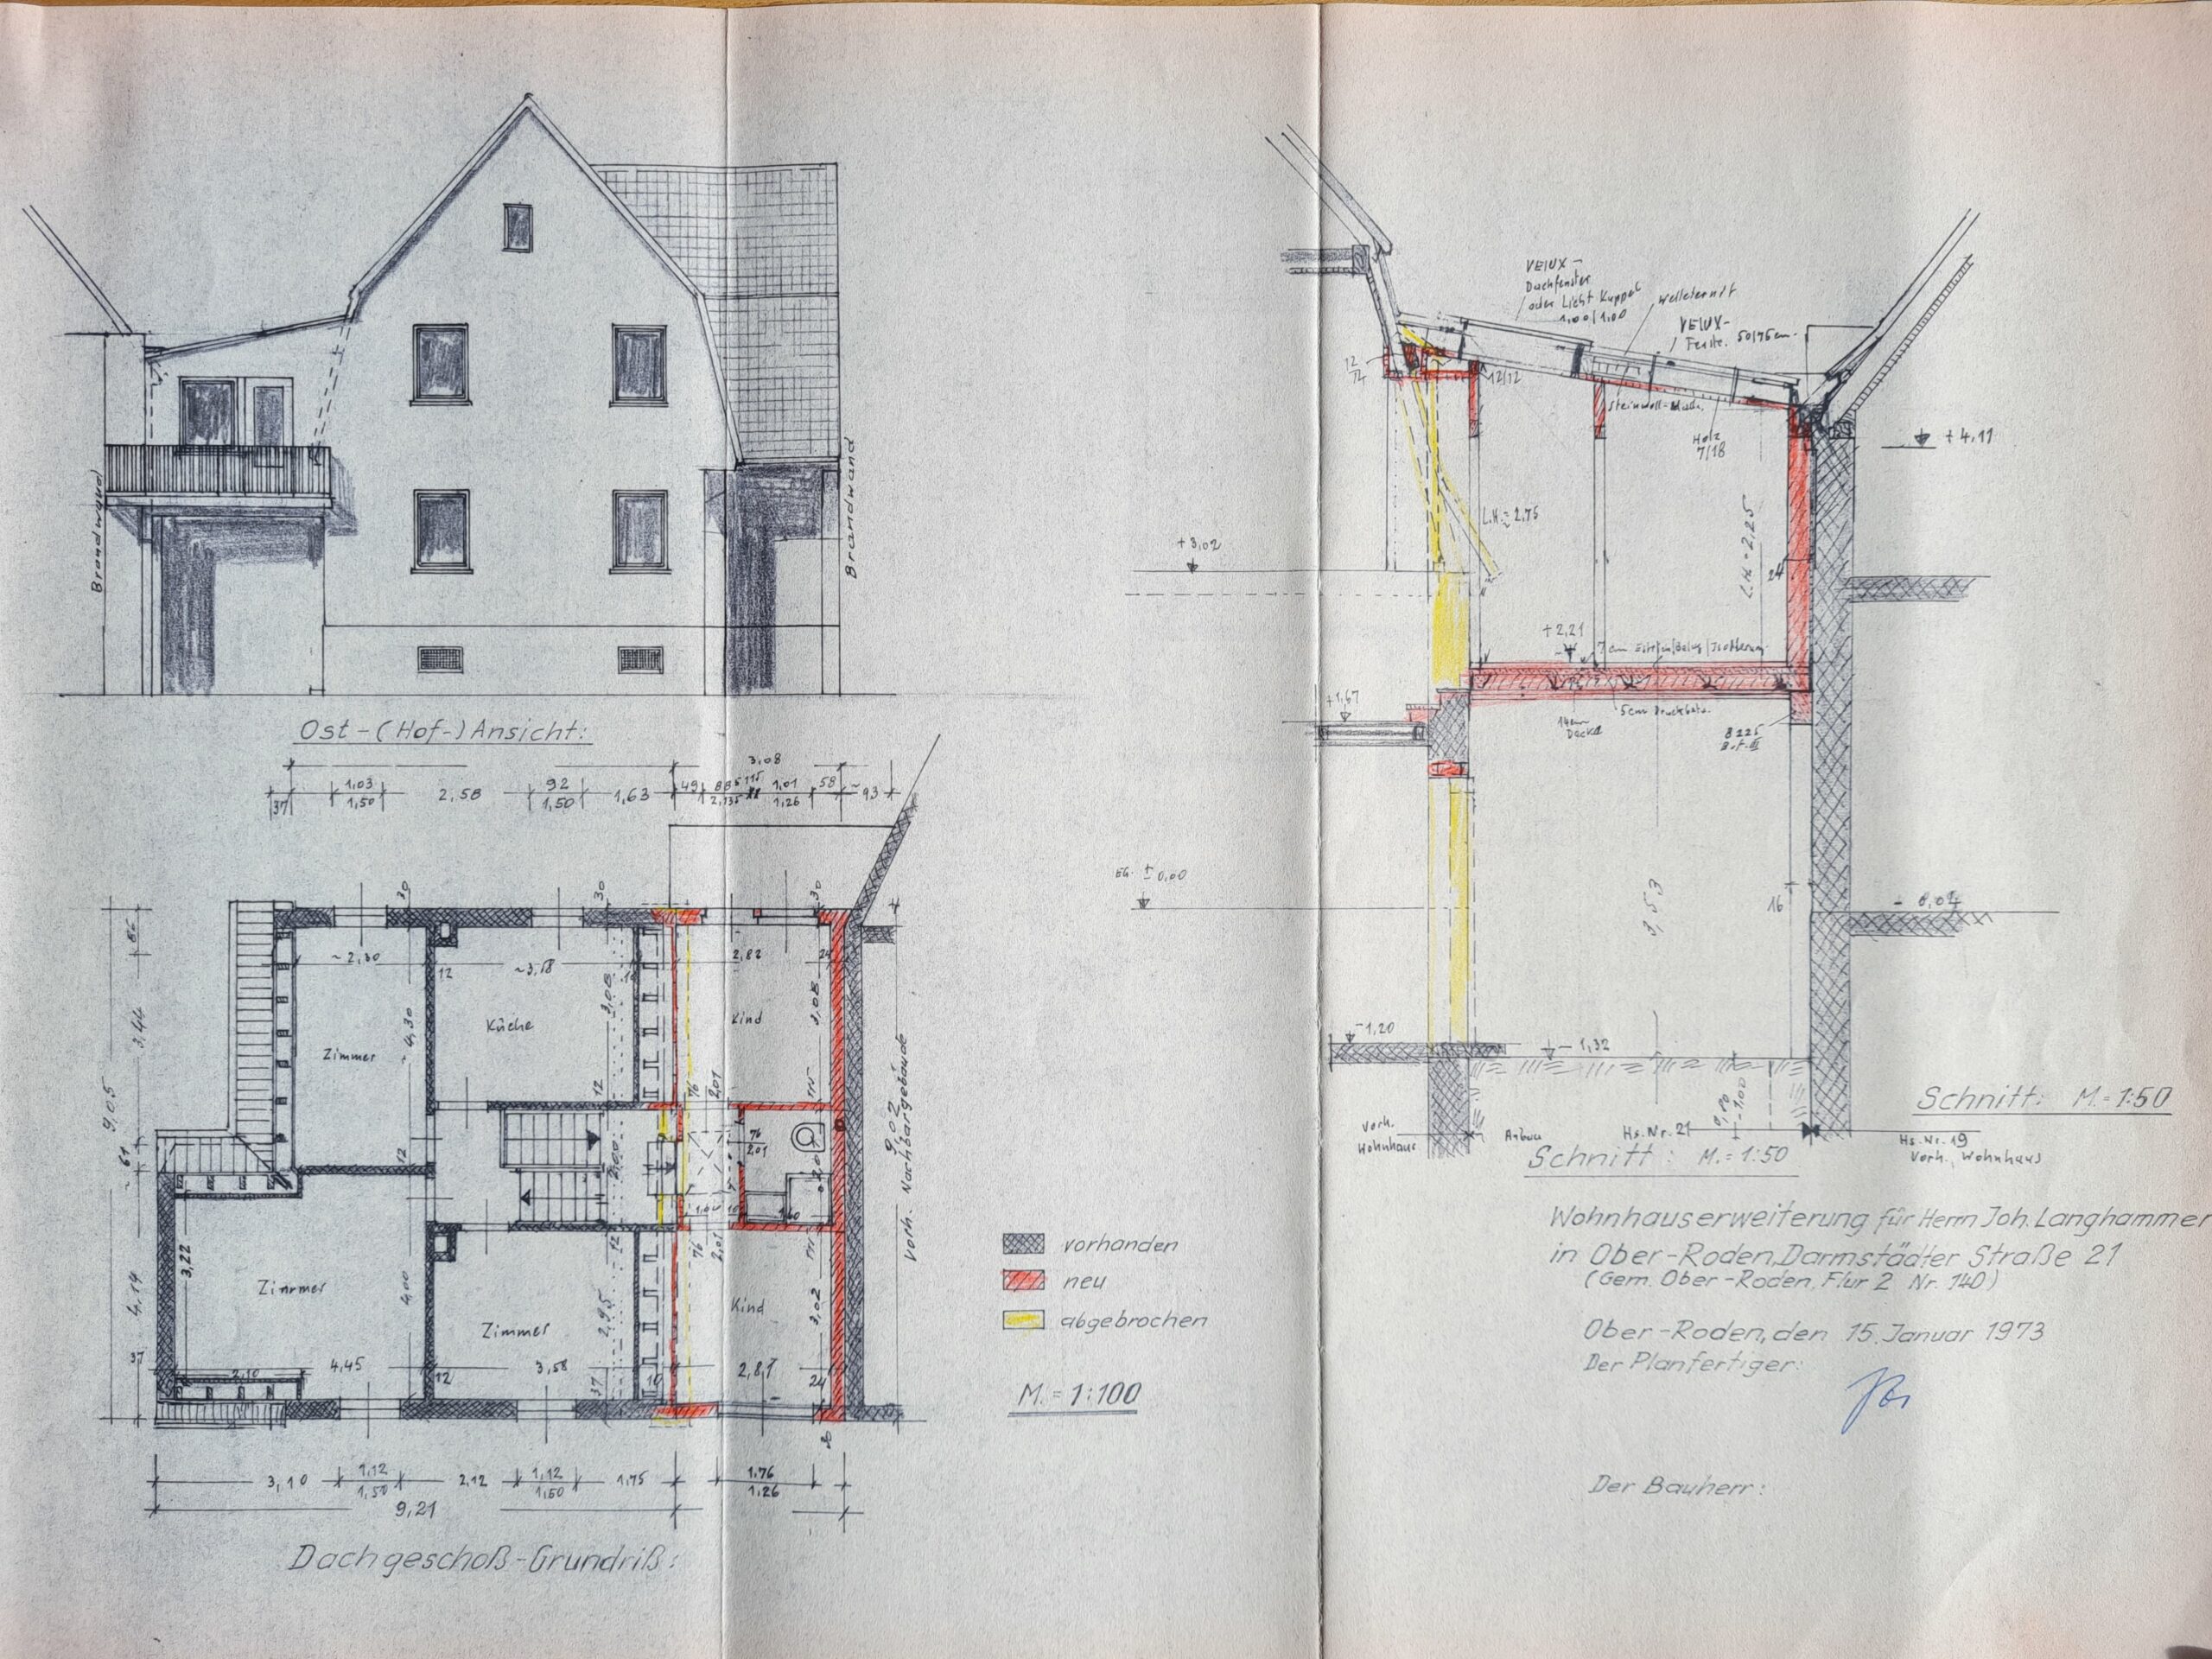 Brandwand
Brandwand
Ost-(Hof-)Ansicht:
3,08
37
1,03
1,50
2,58
92
1,50
1,63
49
885
2,135
115
1,01
1,26
58
~93
30
30
30
~2,30
12
~3,58
2,82
24
3,44
~4,30
3,08
3,08
Küche
Kind
Zimmer
9,05
12
76
2,01
12
~61
2,00
76
2,01
1,60
10
76
2,01
12
9,02
Vorh. Nachbargebäude
3,22
Zimmer
4,00
Zimmer
2,95
Kind
3,02
4,14
37
2,10
4,45
12
3,58
37
10
2,87
24
3,10
1,12
1,50
2,12
1,12
1,50
1,75
1,76
1,26
9,21
Dachgeschoß-Grundriß:
vorhanden
neu
abgebrochen
M.=1:100
VELUX-
Dachfenster
oder Licht Kuppel
1,00/1,00
Welleternit
VELUX-
Fenster 50/75cm.
12/12
Holz
7/18
+4,11
L.H.≈2,75
L.H.=2,25
+3,02
24
+2,21
7 cm Estrich/Belag/Isolierung
+1,67
14cm
Decke
5cm Druckbeto.
EG. ±0,00
3,53
16
-1,20
-1,32
Vorh.
Wohnhaus
Anbau
Hs.Nr. 21
Hs.Nr. 19
Vorh. Wohnhaus
Schnitt: M.=1:50
Schnitt: M.=1:50
Wohnhauserweiterung für Herrn Joh. Langhammer
in Ober-Roden, Darmstädter Straße 21
(Gem. Ober-Roden, Flur 2 Nr. 140)
Ober-Roden, den 15. Januar 1973
Der Planfertiger:
Der Bauherr: